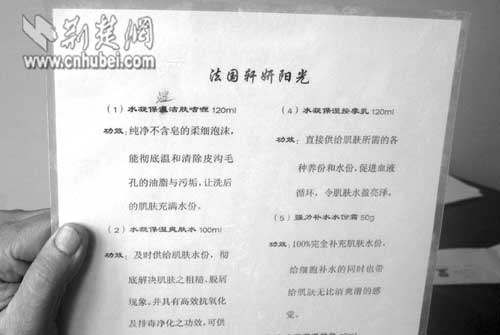 荆楚网
www.cnhubei.com
法国轩妍阳光
湿
(1)水凝保温洁肤啫喱 120ml
功效:纯净不含皂的柔细泡沫,
能彻底温和清除皮沟毛
孔的油脂与污垢,让洗后
的肌肤充满水份。
(2)水凝保湿爽肤水 100ml
功效:及时供给肌肤水份,彻
底解决肌肤之粗糙、脱屑
现象。并具有高效抗氧化
及排毒净化之功效,可供
(4)水凝保湿按摩乳 120ml
功效:直接供给肌肤所需的各
种养份和水份,促进血液
循环,令肌肤水盈亮泽。
(5)强力补水水份霜 50g
功效:100%完全补充肌肤水份,
给细胞补水的同时也带
给肌肤无比清爽滑的感
觉。